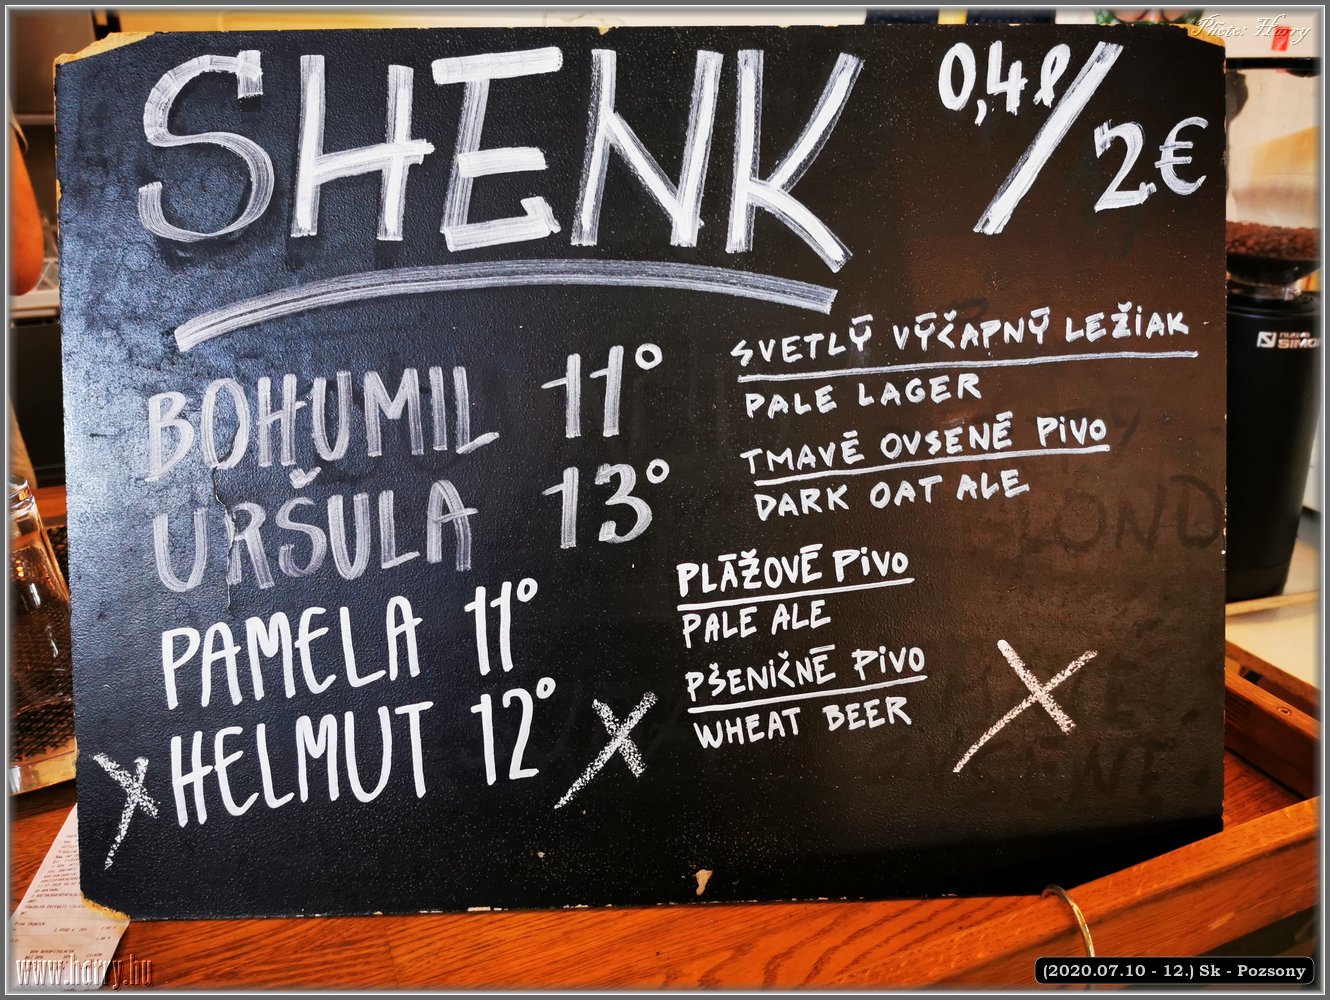 Photo: Harry
SHENK
0,4l/2€
BOHUMIL 11°
SVETLÝ VÝČAPNÝ LEŽIAK
PALE LAGER
URŠULA 13°
TMAVÉ OVSENÉ PIVO
DARK OAT ALE
PAMELA 11°
PLÁŽOVÉ PIVO
PALE ALE
HELMUT 12°
PŠENIČNÉ PIVO
WHEAT BEER
www.harry.hu
(2020.07.10 - 12.) Sk - Pozsony